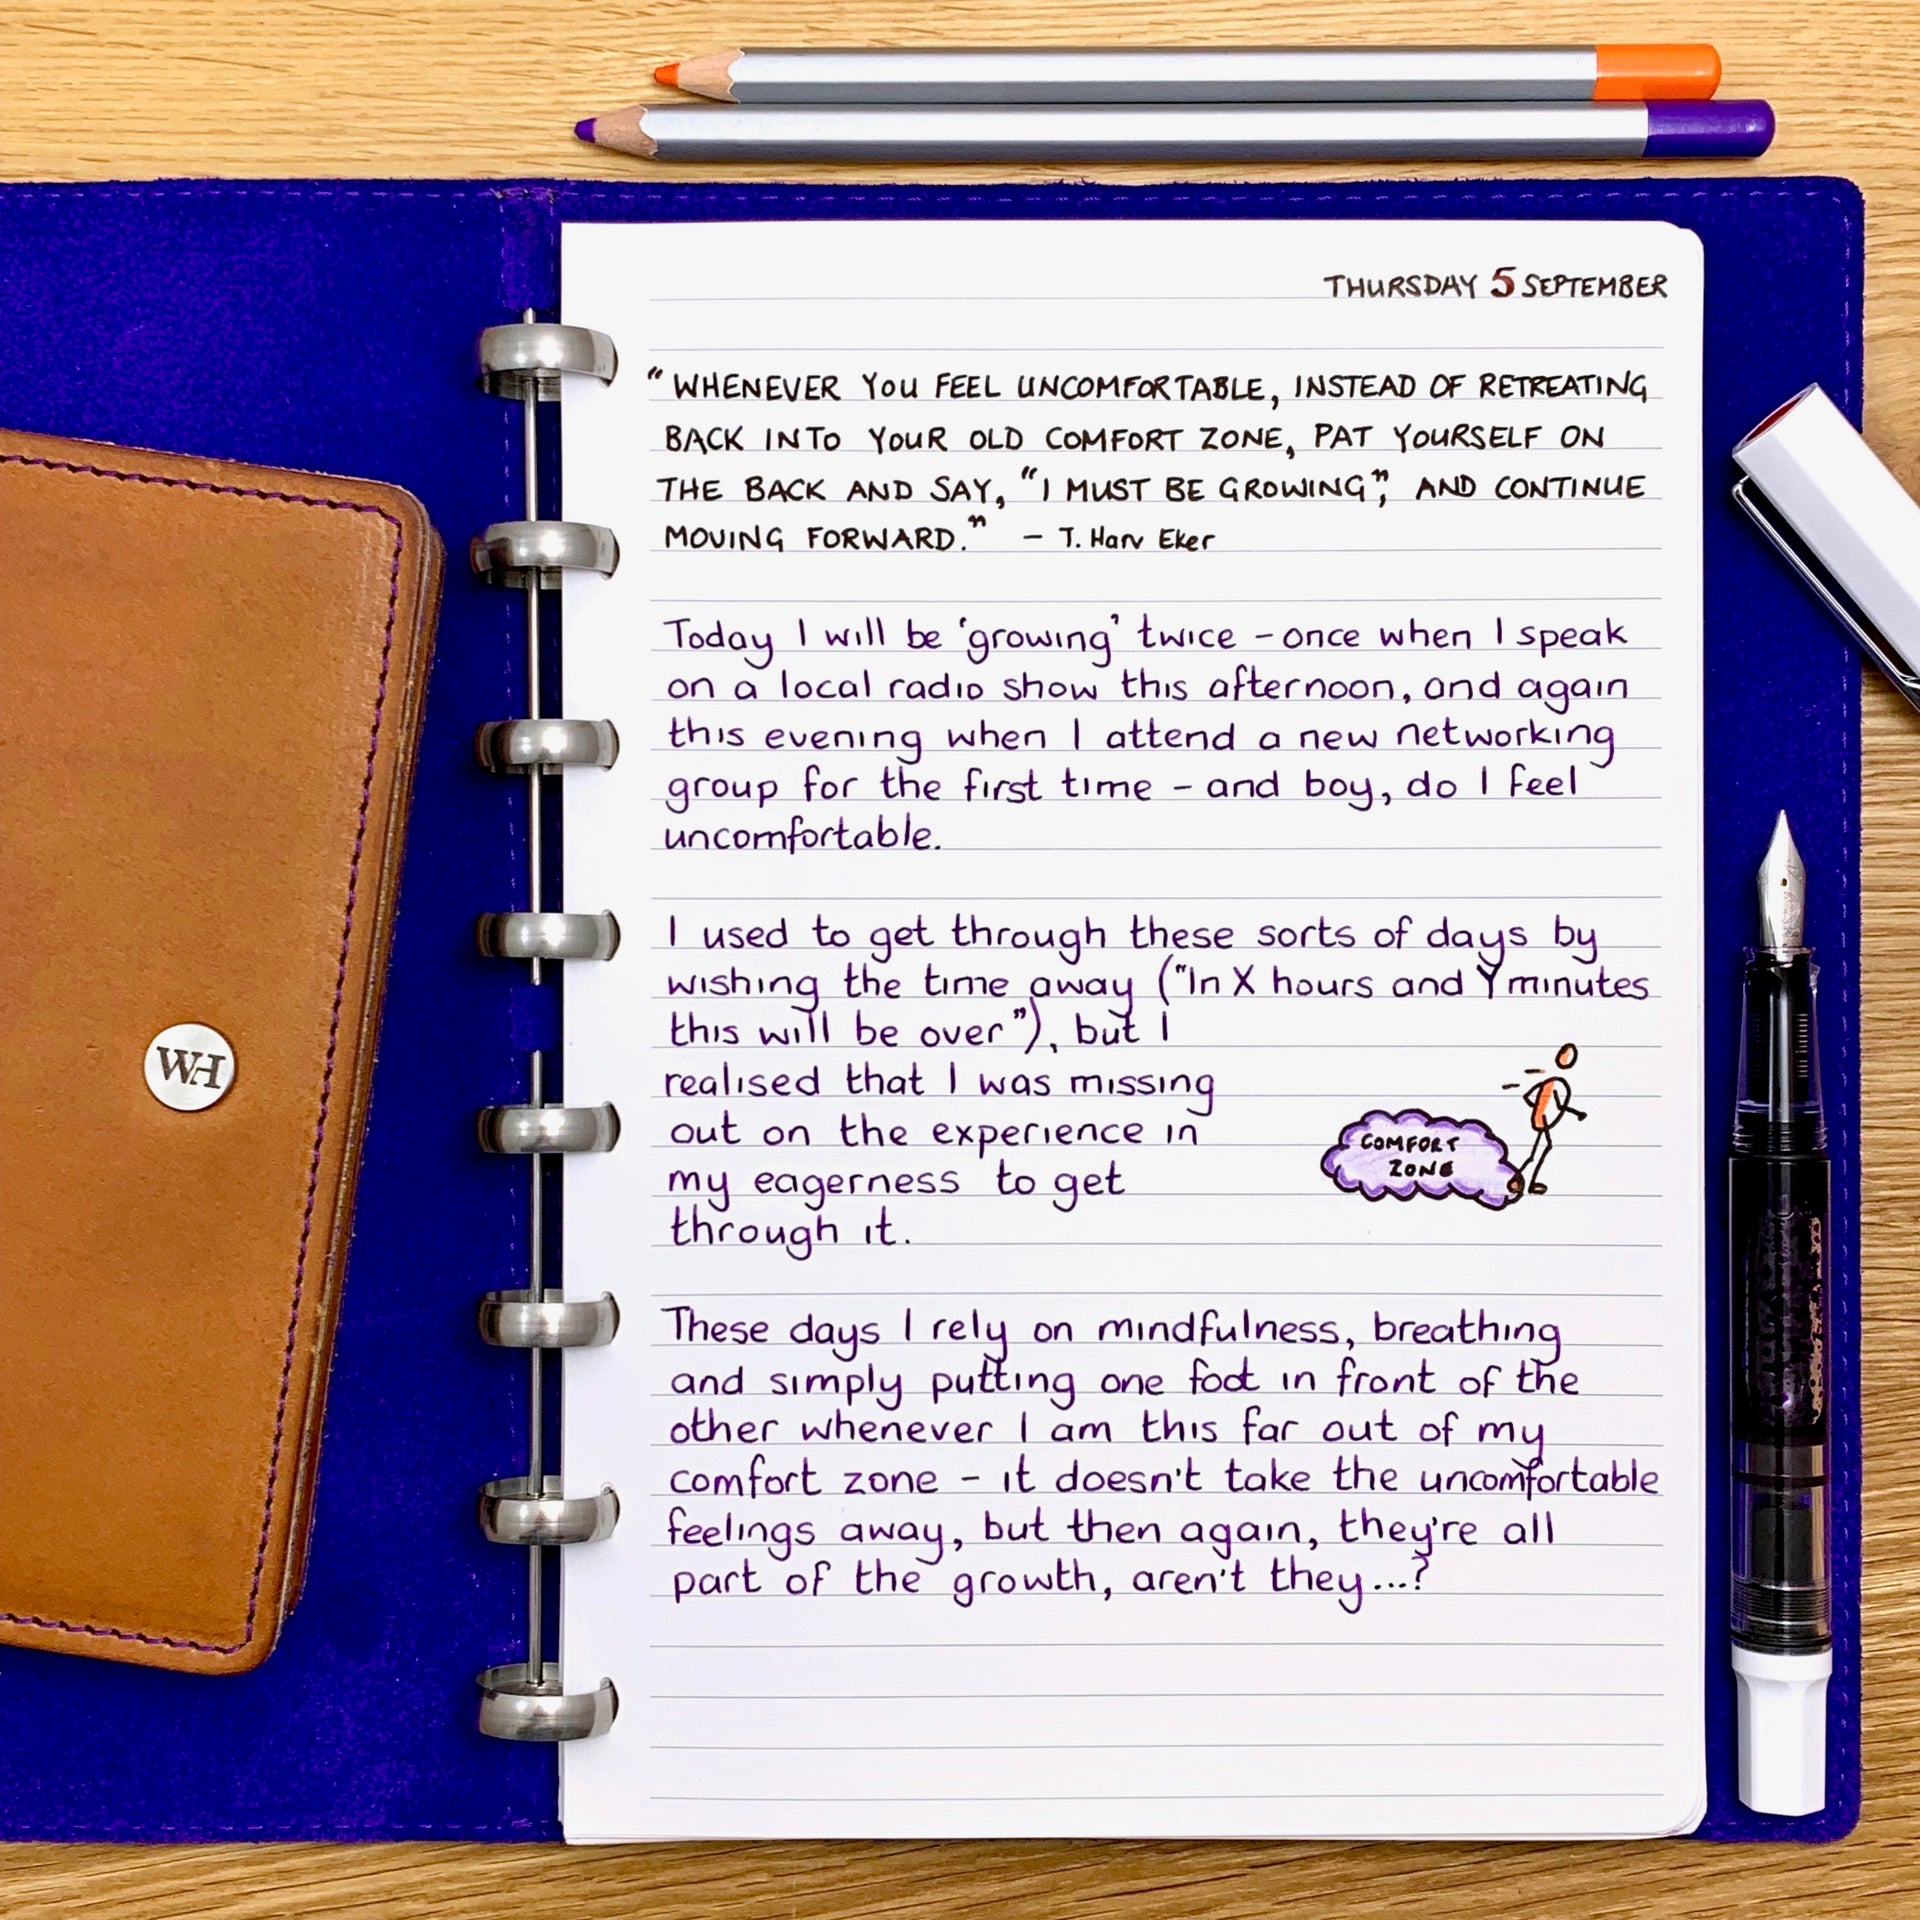 THURSDAY 5 SEPTEMBER
"WHENEVER YOU FEEL UNCOMFORTABLE, INSTEAD OF RETREATING
BACK INTO YOUR OLD COMFORT ZONE, PAT YOURSELF ON
THE BACK AND SAY, "I MUST BE GROWING", AND CONTINUE
MOVING FORWARD." – T. Harv Eker
Today I will be 'growing' twice – once when I speak
on a local radio show this afternoon, and again
this evening when I attend a new networking
group for the first time – and boy, do I feel
uncomfortable.
I used to get through these sorts of days by
wishing the time away ("In X hours and Y minutes
this will be over"), but I
realised that I was missing
out on the experience in
my eagerness to get
through it.
COMFORT
ZONE
These days I rely on mindfulness, breathing
and simply putting one foot in front of the
other whenever I am this far out of my
comfort zone – it doesn't take the uncomfortable
feelings away, but then again, they're all
part of the growth, aren't they...?
WH